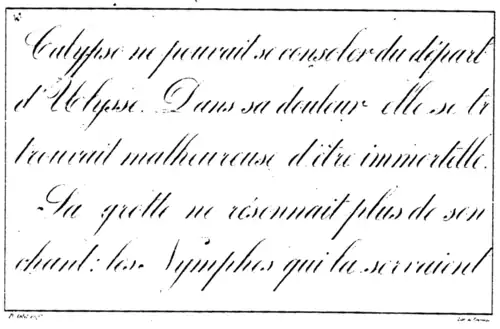 Calypso ne pouvait se consoler du départ
d'Ulysse. Dans sa douleur elle se tr
trouvait malheureuse d'être immortelle.
Sa grotte ne résonnait plus de son
chant: les Nymphes qui la servaient